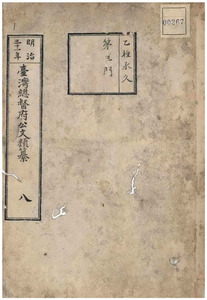 00267
乙種永久
第五門
明治
三十一年
臺灣總督府公文類纂
八